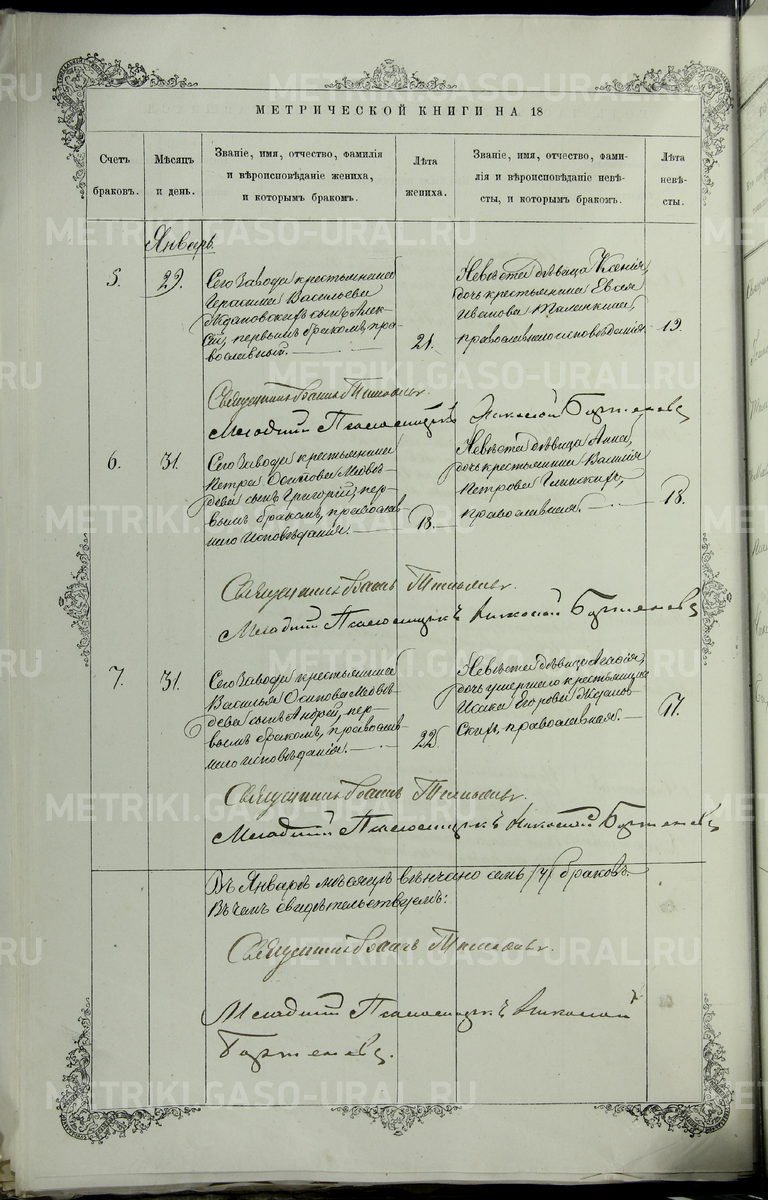 МЕТРИЧЕСКОЙ КНИГИ НА 18
Счетъ браковъ.
Мѣсяцъ и день.
Званіе, имя, отчество, фамилія
и вѣроисповѣданіе жениха,
и которымъ бракомъ.
Лѣта жениха.
Званіе, имя, отчество, фами-
лія и вѣроисповѣданіе невѣ-
сты, и которымъ бракомъ.
Лѣта невѣ-
сты.
Январь.
5.
29.
Сего Завода крестьянина
Герасима Васильева
Ждановскихъ сынъ Алек-
сѣй, первымъ бракомъ, пра-
вославный.
21.
Невѣста дѣвица Ксенія,
дочь крестьянина Евсея
Иванова
православнаго исповѣданія.
19.
Священникъ Іоаннъ
Младшій Псаломщикъ Николай Бартеневъ
6.
31.
Сего Завода крестьянина
Петра Осипова Медвѣ-
дева сынъ Григорій, пер-
вымъ бракомъ, православ-
наго исповѣданія.
18.
Невѣста дѣвица Анна,
дочь крестьянина Василія
Петрова Глинскихъ,
православная.
18.
Священникъ Іоаннъ
Младшій Псаломщикъ Николай Бартеневъ
7.
31.
Сего Завода крестьянина
Василья Осипова Медвѣ-
дева сынъ Андрей, пер-
вымъ бракомъ, православ-
наго исповѣданія.
22.
Невѣста дѣвица Агафія,
дочь умершаго крестьянина
Исака Егорова Жданов-
скихъ, православная.
17.
Священникъ Іоаннъ
Младшій Псаломщикъ Николай Бартеневъ
Въ Январѣ мѣсяцѣ вѣнчано семь /7/ браковъ.
Въ чемъ свидѣтельствуемъ:
Священникъ Іоаннъ
Младшій Псаломщикъ Николай
Бартеневъ.
METRIKI.GASO-URAL.RU